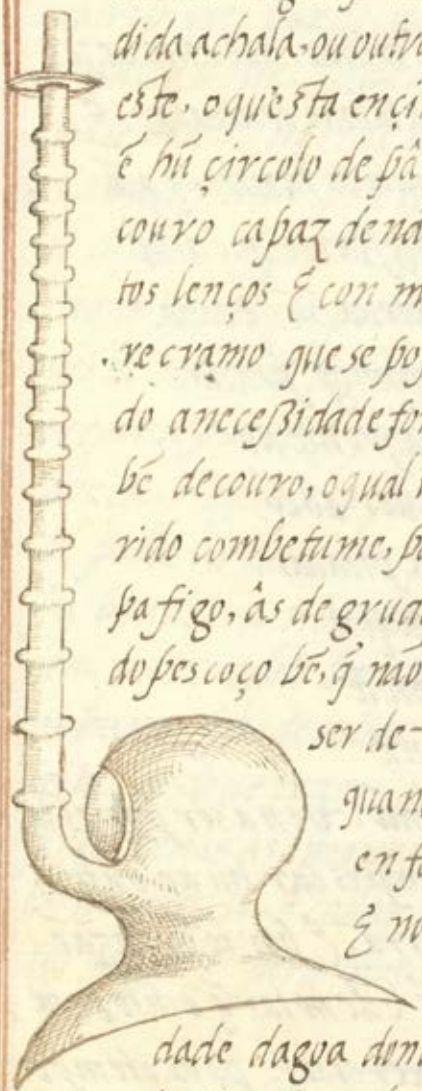 dida achala, ou outra
este. o questa ençi
é hũ çirculo de pâ
couro capaz de na
tos lenços & con m
re cramo que se po
do a neceßidade for
bẽ de couro, o qual
rido com betume, pa
pa figo, âs de grud
do pescoço bẽ, q̃ não
ser de-
quan
en fo
& no
dade dagoa don